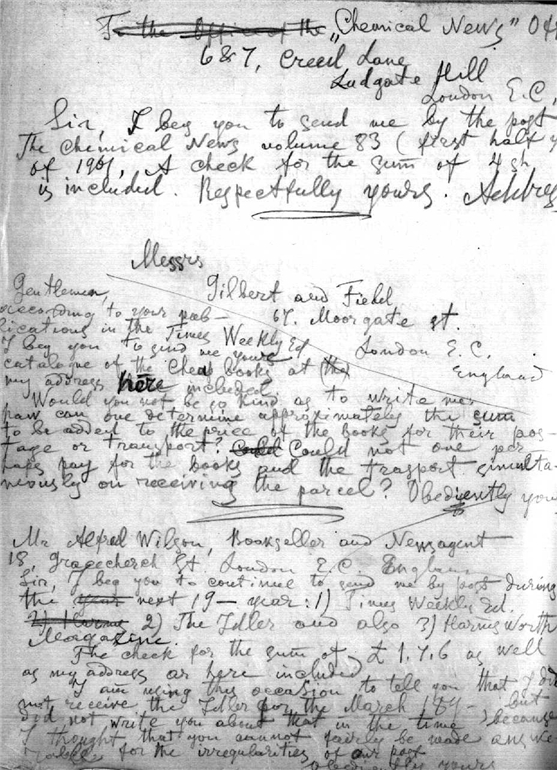 To the Office of the "Chemical News" Off
6 & 7, Creed Lane
Ludgate Hill
London E.C.
Sir, I beg you to send me by the post
The Chemical News volume 83 (first half y
of 1901, A check for the sum of 4 sh
is included. Respectfully yours. Addres
Messrs
Gilbert and Field
67. Moorgate st.
London E.C.
England
Gentlemen,
according to your pub-
lications in the Times Weekly Ed
I beg you to send me yours
catalogue of the Cheap Books at (the)
my address here included.
Would you not be so kind as to write me:
how can one determine approximately the sum
to be added to the price of the books for their pos-
tage or transport? Could Could not one per
haps pay for the books and the trasport simulta-
neously on receiving the parcel? Obediently you
Mr Alfred Wilson, Bookseller and Newsagent
18, Gracechurch St. London E.C. England
Sir, I beg you to continue to send me by post during
the next 19— year: 1) Times Weekly Ed.
2) The Idler and also 3) Harmsworth
Magazine.
The check for the sum of £ 1.7.6 as well
as my address ar here included
I am using this occasion to tell you that I did
not receive the Idler for the March 189- but
did not write you about that in the time, because
I thought that you cannot fairly be made answe
for the irregularities of our post
yours